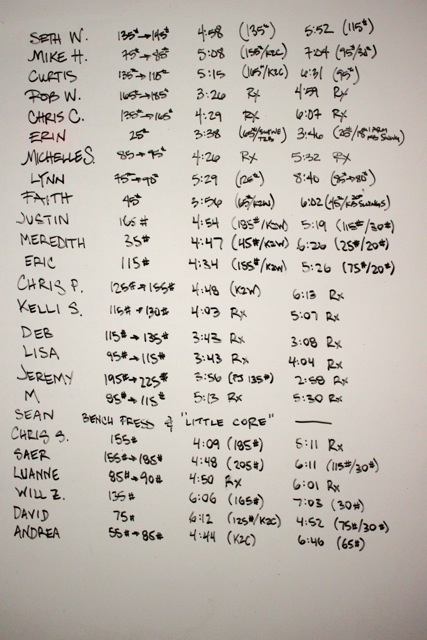 SETH W. 135#→145# 4:58 (135#) 5:52 (115#)
MIKE H. 75#→95# 5:08 (155#/K2C) 7:04 (95#/30#)
CURTIS 135#→115# 5:15 (165#/K2C) 6:31 (95#)
ROB W. 165#→185# 3:26 Rx 4:59 Rx
CHRIS C. 135#→165# 4:29 Rx 6:07 Rx
ERIN 25# 3:38 3:46
MICHELLE S. 85→95# 4:26 Rx 5:32 Rx
LYNN 75#→90# 5:29 (125#) 8:40 (85→80#)
FAITH 45# 3:56 (65#/K2W) 6:02
JUSTIN 165# 4:54 (185#/K2W) 5:19 (115#/30#)
MEREDITH 35# 4:47 (45#/K2W) 6:26 (25#/20#)
ERIC 115# 4:34 (155#/K2W) 5:26 (75#/20#)
CHRIS P. 125#→155# 4:48 (K2W) 6:13 Rx
KELLI S. 115#→130# 4:03 Rx 5:07 Rx
DEB 115#→135# 3:43 Rx 3:08 Rx
LISA 95#→115# 3:43 Rx 4:04 Rx
JEREMY 195#→225# 3:56 (PJ 135#) 2:58 Rx
M 85#→115# 5:13 Rx 5:30 Rx
SEAN BENCH PRESS & "LITTLE CORE" —
CHRIS S. 155# 4:09 (185#) 5:11 Rx
SAER 155#→185# 4:48 (205#) 6:11 (115#/30#)
LUANNE 85#→90# 4:50 Rx 6:01 Rx
WILL Z. 135# 6:06 (165#) 7:03 (30#)
DAVID 75# 6:12 (125#/K2C) 4:52 (75#/30#)
ANDREA 55#→85# 4:44 (K2C) 6:46 (65#)